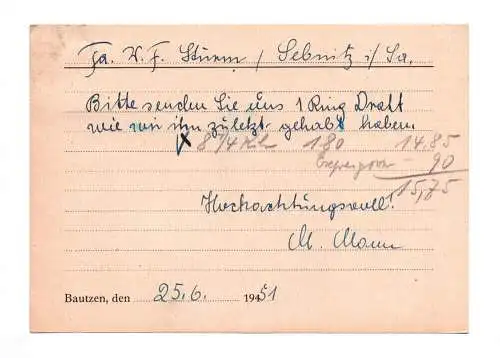 Fa. W. F. Sturm / Sebnitz i/Sa.
Bitte senden Sie uns 1 Ring Dratt
wie wir ihn zuletzt gehabt haben.
x 8 1/4 180 14.85
90
15,75
Hochachtungsvoll!
M. Mann
Bautzen, den 25.6. 1951